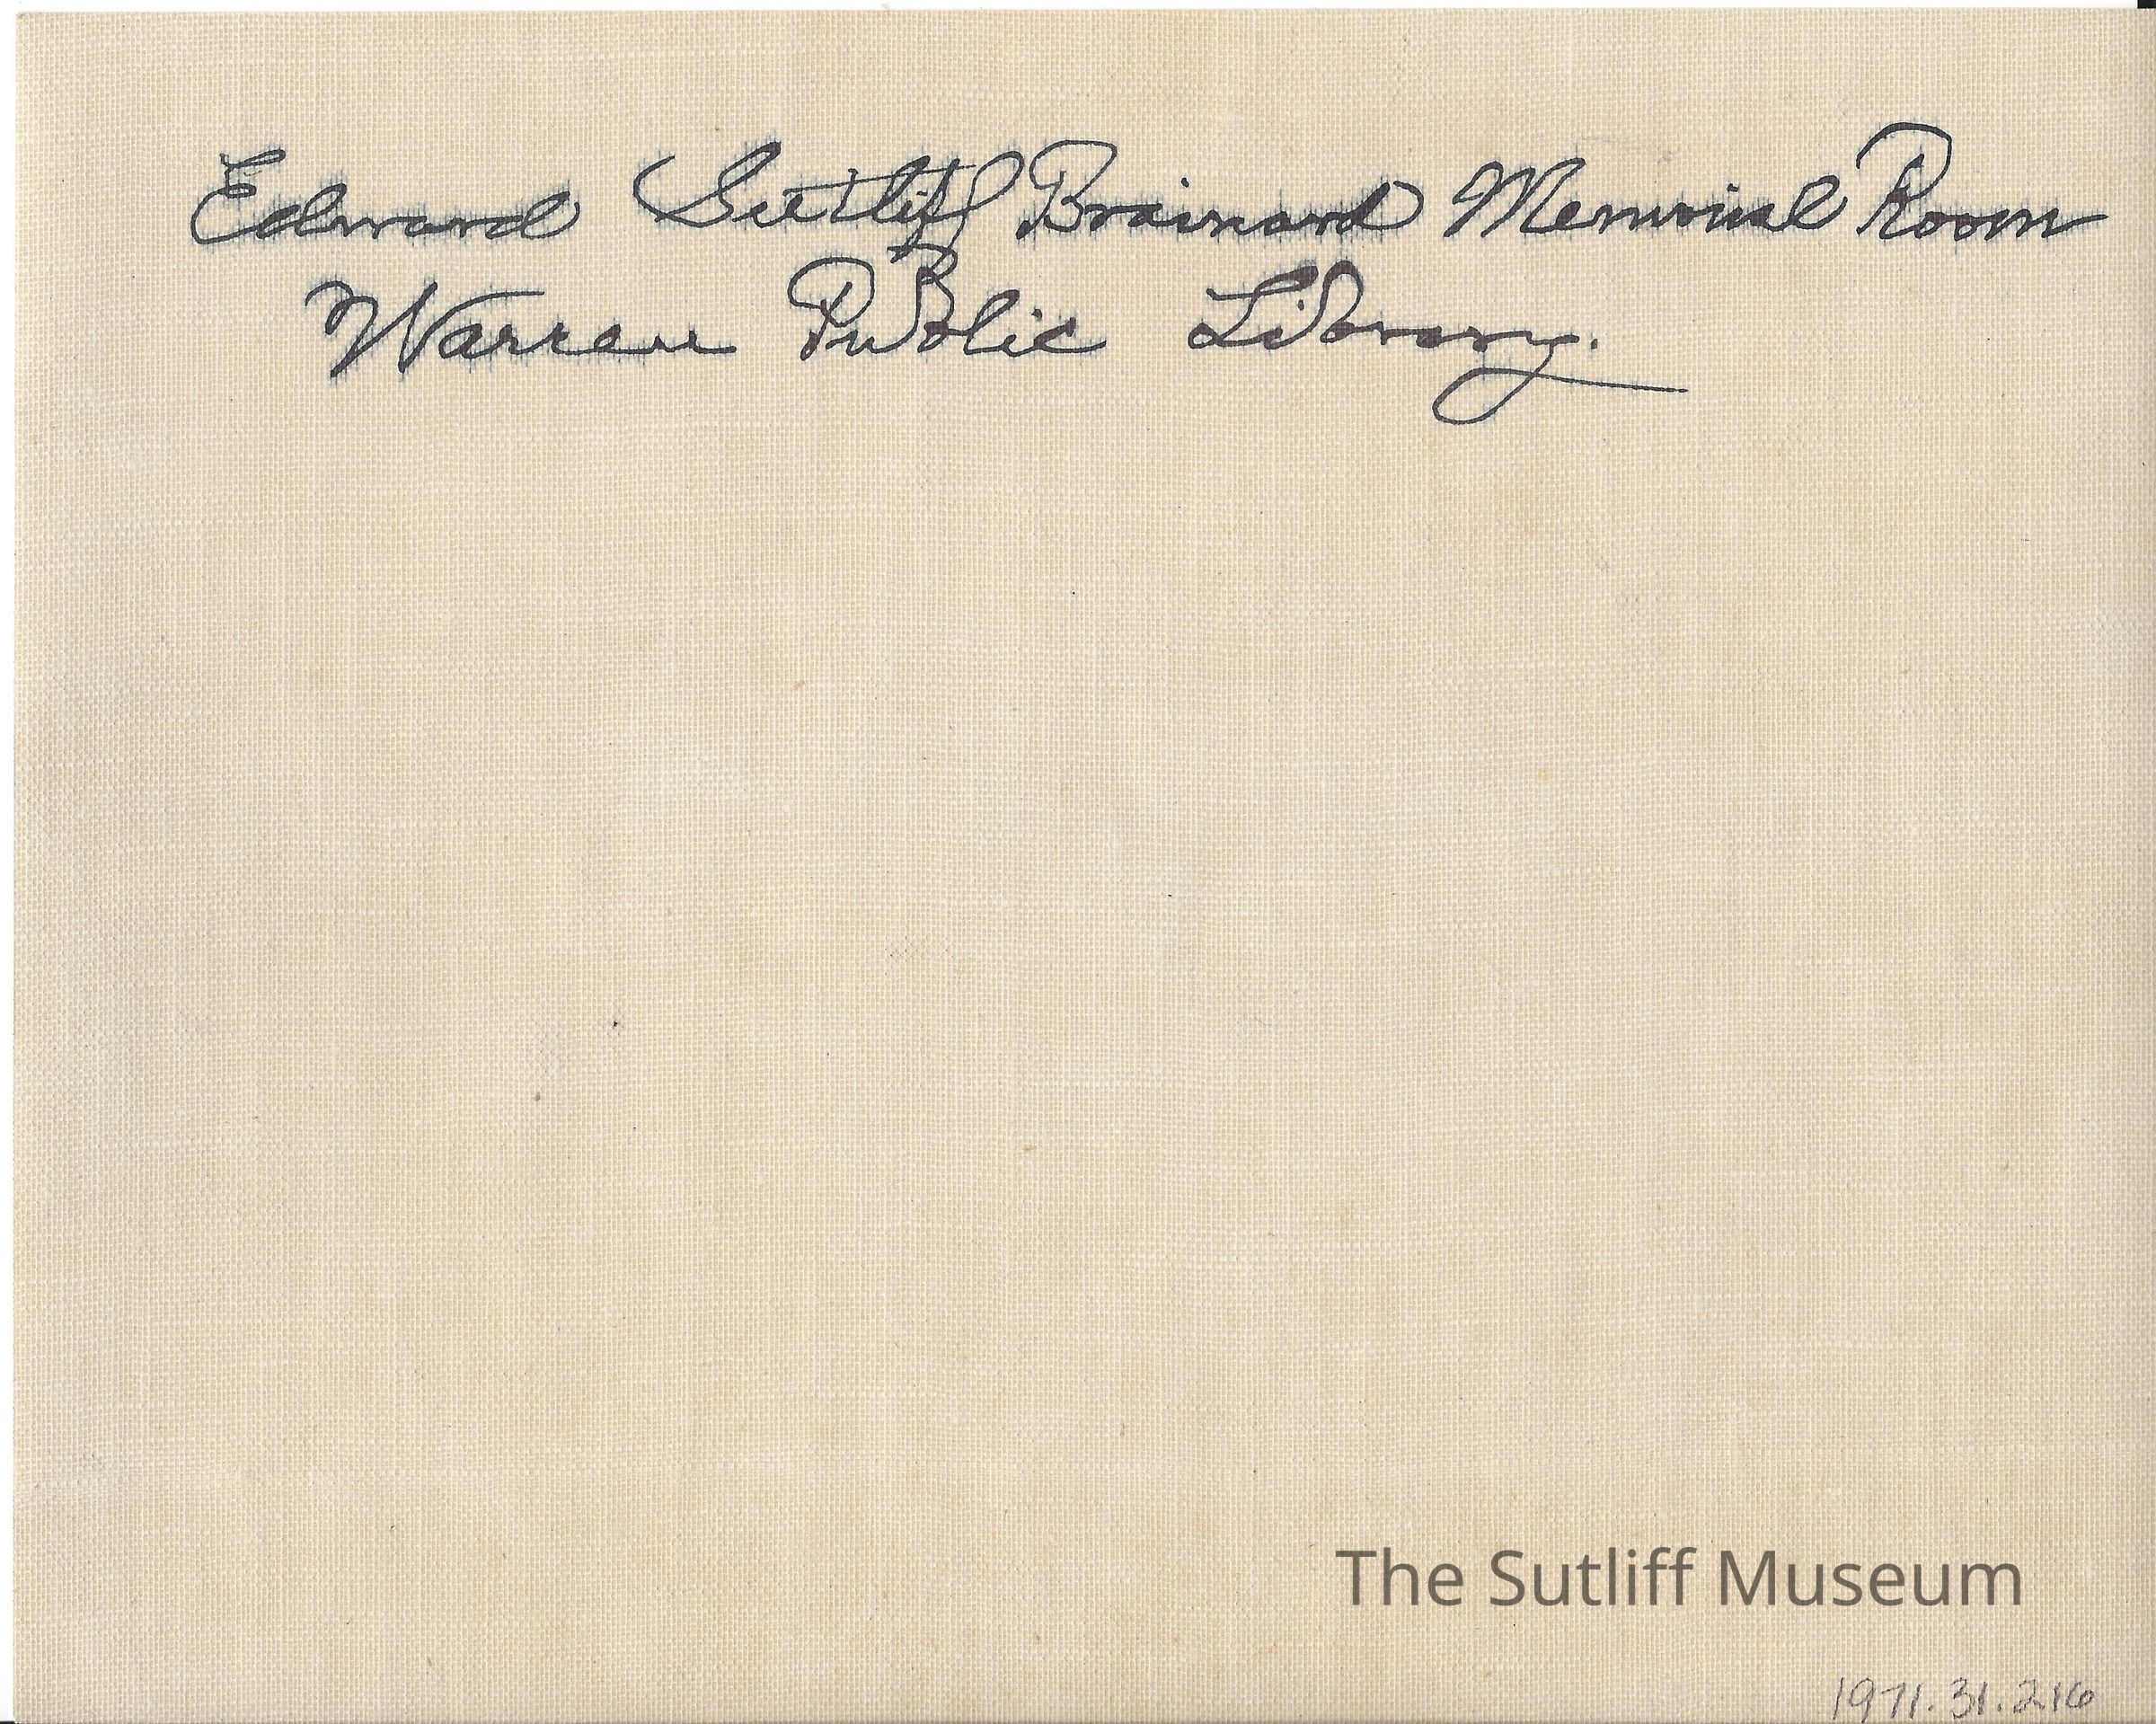 Edward Sutliff Brainard Memorial Room
Warren Public Library.
The Sutliff Museum
1971.31.216